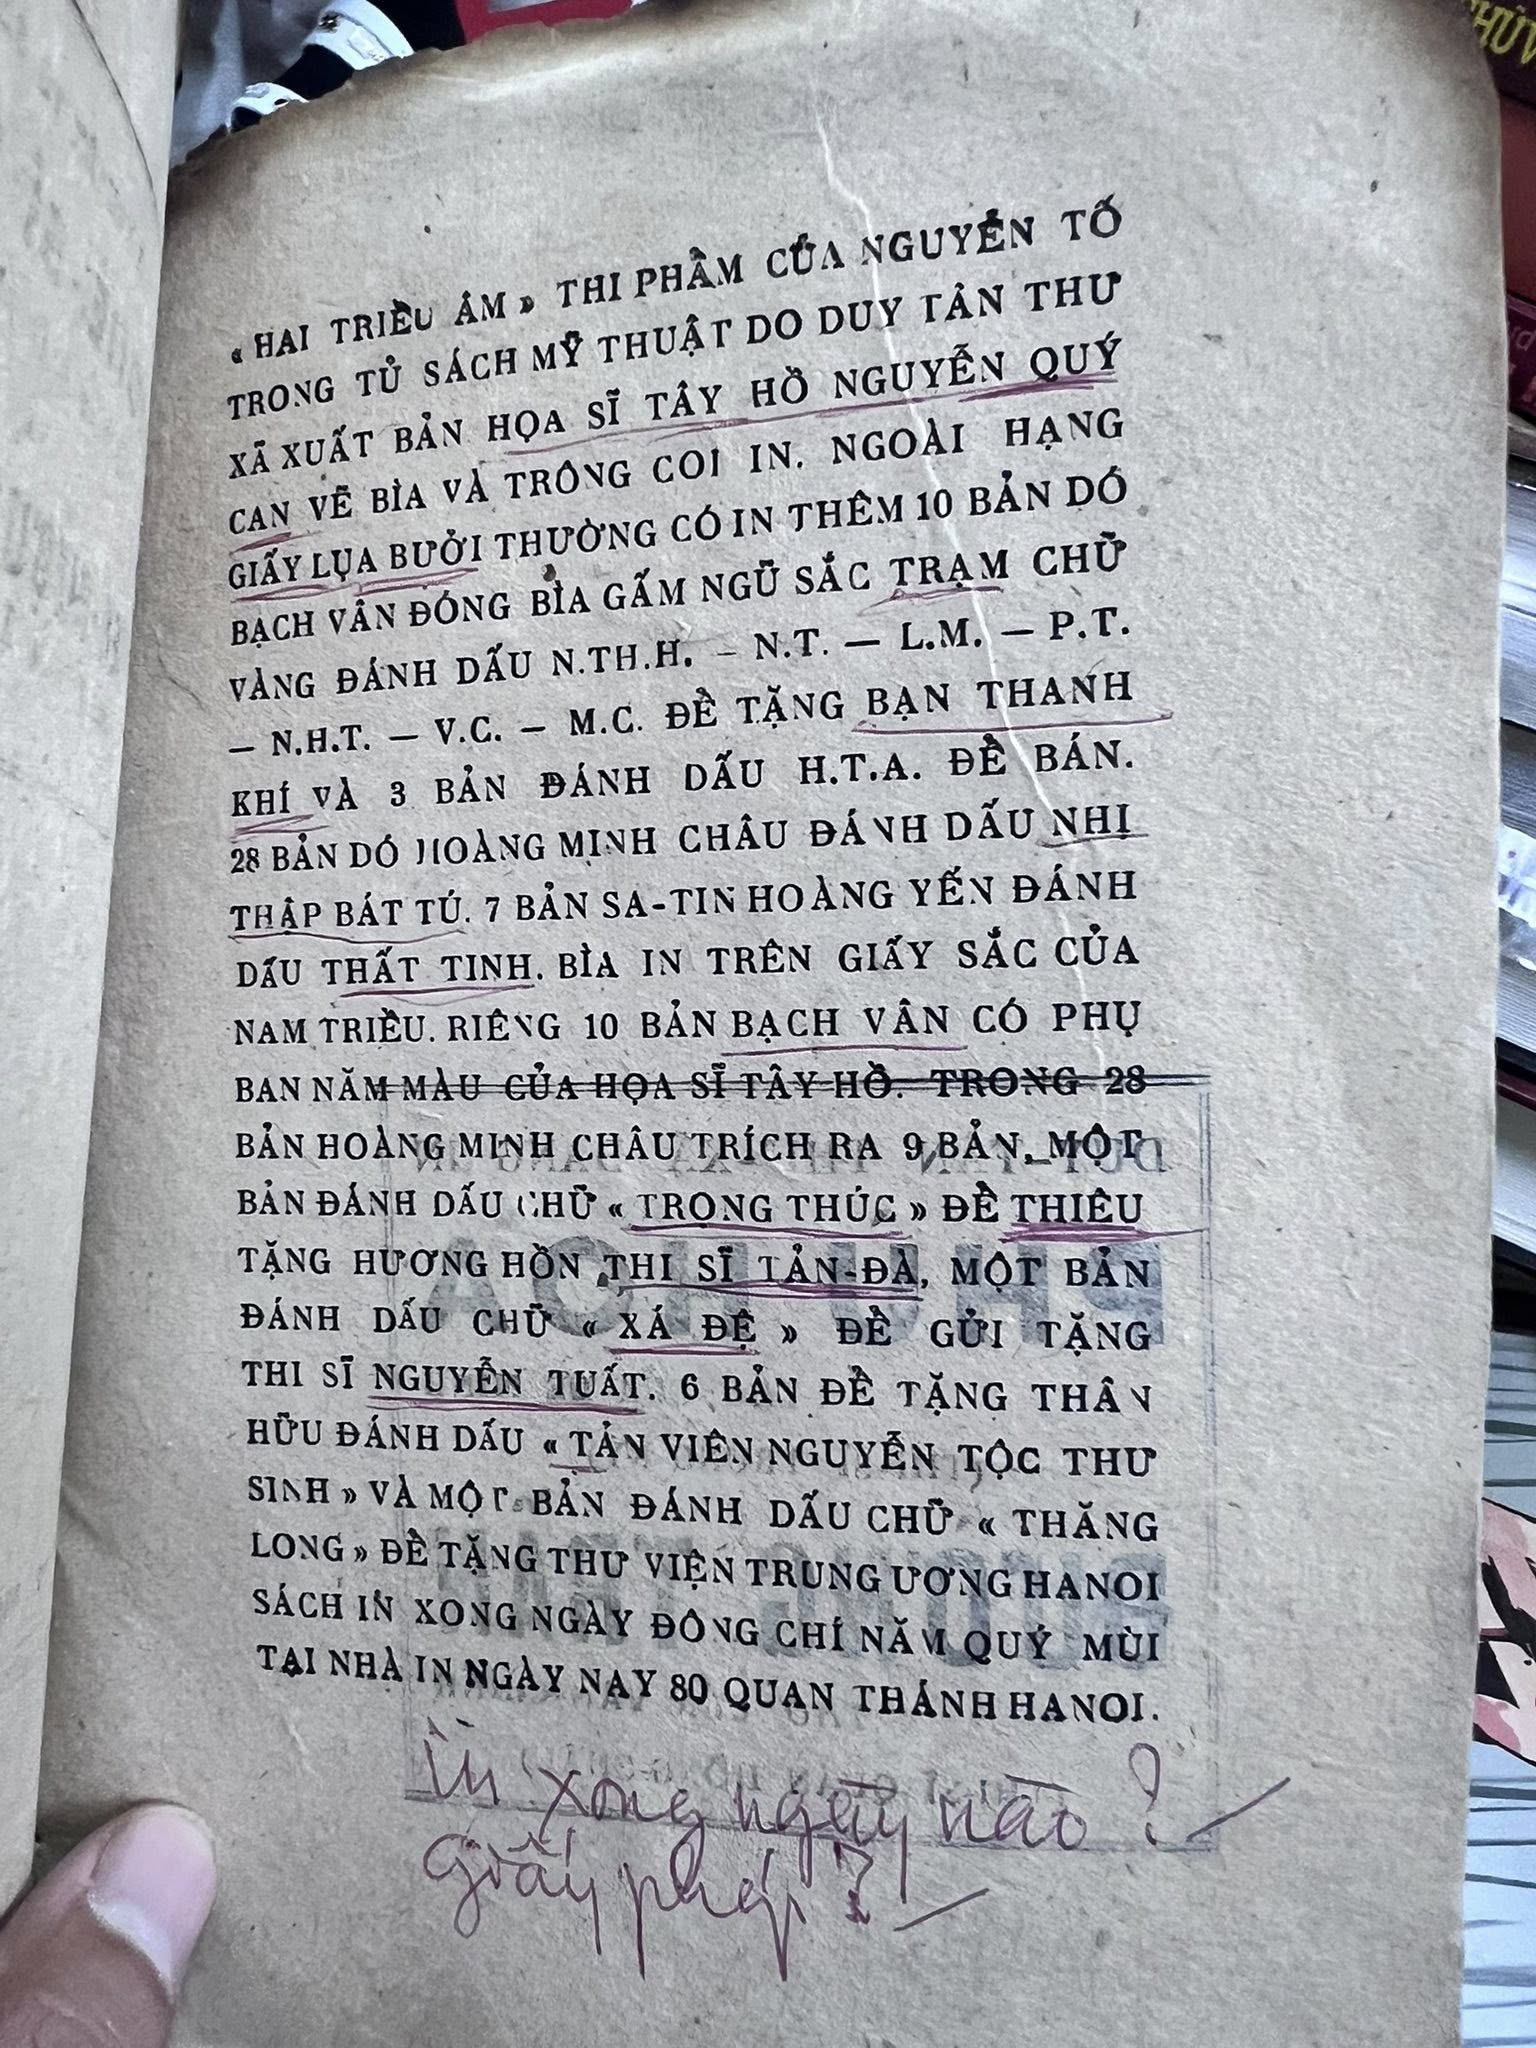 « HAI TRIỀU ÂM » THI PHẨM CỦA NGUYỄN TỐ
TRONG TỦ SÁCH MỸ THUẬT DO DUY TÂN THƯ
XÃ XUẤT BẢN HỌA SĨ TÂY HỒ NGUYỄN QUÝ
CAN VẼ BÌA VÀ TRÔNG COI IN. NGOÀI HẠNG
GIẤY LỤA BƯỞI THƯỜNG CÓ IN THÊM 10 BẢN DÓ
BẠCH VÂN ĐÓNG BÌA GẤM NGŨ SẮC TRẠM CHỮ
VÀNG ĐÁNH DẤU N.TH.H. – N.T. — L.M. — P.T.
— N.H.T. — V.C. — M.C. ĐỀ TẶNG BẠN THANH
KHÍ VÀ 3 BẢN ĐÁNH DẤU H.T.A. ĐỀ BÁN.
28 BẢN DÓ HOÀNG MINH CHÂU ĐÁNH DẤU NHỊ
THẬP BÁT TÚ. 7 BẢN SA-TIN HOÀNG YẾN ĐÁNH
DẤU THẤT TINH. BÌA IN TRÊN GIẤY SẮC CỦA
NAM TRIỀU. RIÊNG 10 BẢN BẠCH VÂN CÓ PHỤ
BẢN NĂM MÀU CỦA HỌA SĨ TÂY HỒ. TRONG 28
BẢN HOÀNG MINH CHÂU TRÍCH RA 9 BẢN, MỘT
BẢN ĐÁNH DẤU CHỮ « TRỌNG THÚC » ĐỀ THIÊU
TẶNG HƯƠNG HỒN THI SĨ TẢN-ĐÀ, MỘT BẢN
ĐÁNH DẤU CHỮ « XÁ ĐỆ » ĐỀ GỬI TẶNG
THI SĨ NGUYỄN TUẤT. 6 BẢN ĐỀ TẶNG THÂN
HỮU ĐÁNH DẤU « TẢN VIÊN NGUYỄN TỘC THƯ
SINH » VÀ MỘT BẢN ĐÁNH DẤU CHỮ « THĂNG
LONG » ĐỀ TẶNG THƯ VIỆN TRUNG ƯƠNG HANOI
SÁCH IN XONG NGÀY ĐÔNG CHÍ NĂM QUÝ MÙI
TẠI NHÀ IN NGÀY NAY 80 QUAN THÁNH HANOI.
in xong ngày nào ?
giấy phép ?